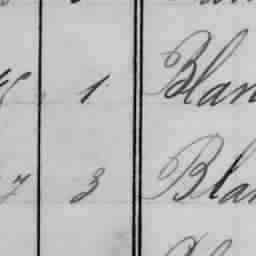 1 Blan
7 3 Bla